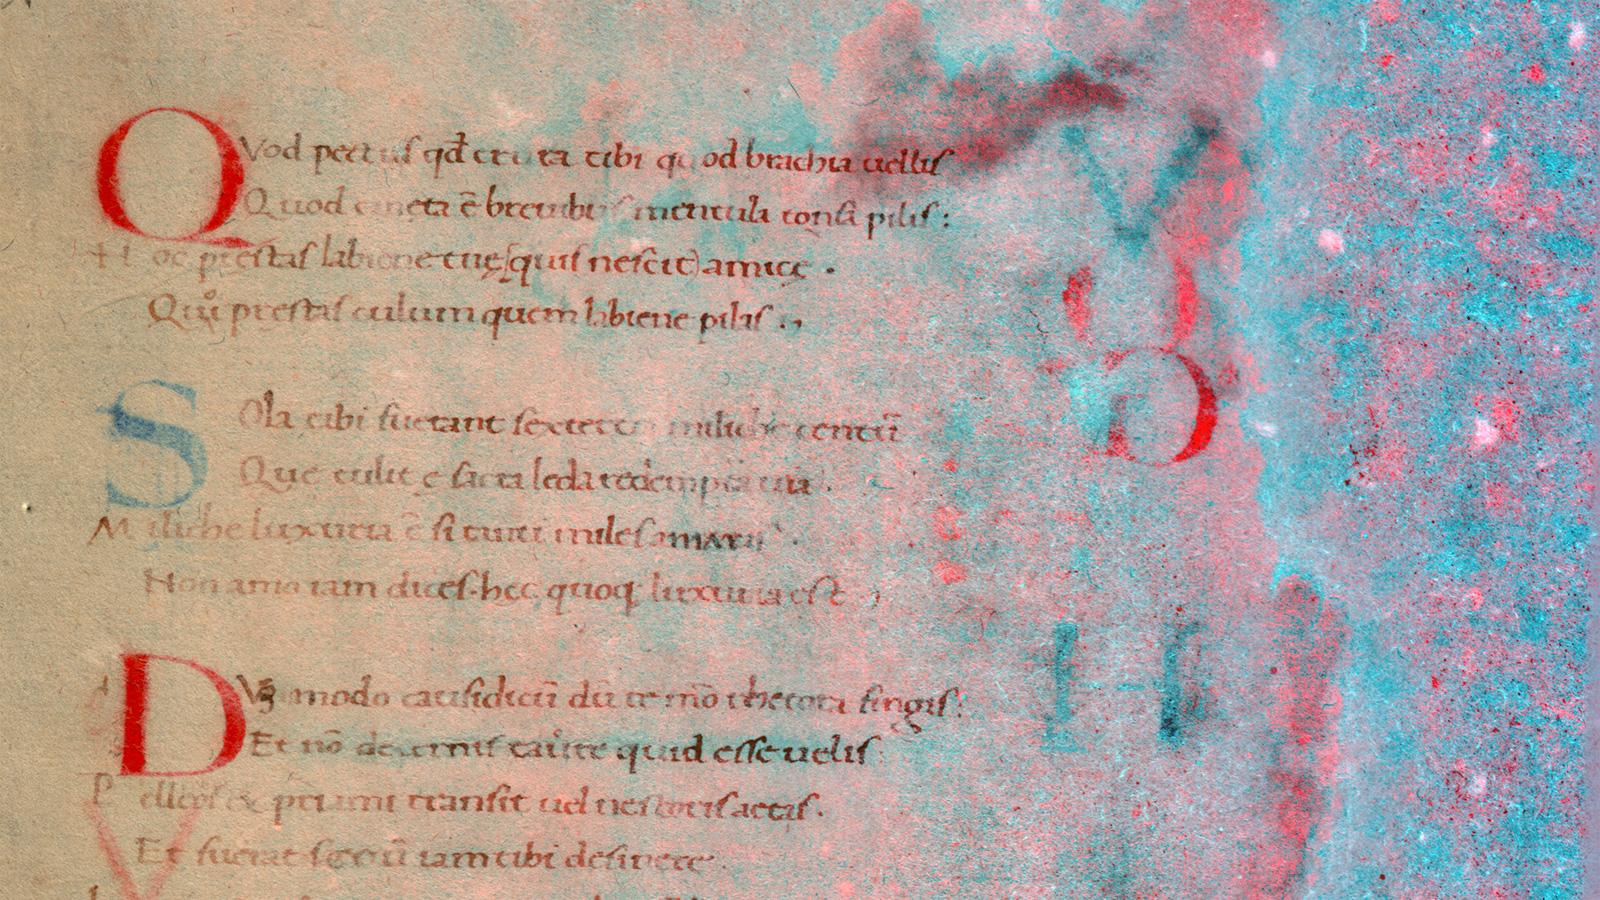 QVod pectus qđ crura tibi quod brachia uellis
Quod cincta ē breuibus mentula tonsa pilis:
Hoc prestas labiene tuę (quis nescit) amicę .
Qui prestas culum quem labiene pilas .
SOla tibi fuerant sextertia miliche centū
Que tulit e sacra leda redempta uia .
Miliche luxuria ē si tanti miles amares .
Non amo iam dices. hec quoq luxuria est
DVm modo causidicū dū te mō rhetora fingis:
Et nō decernis taure quid esse uelis
Peleos & priami transit uel nestoris aetas.
Et fuerat serū iam tibi desinere